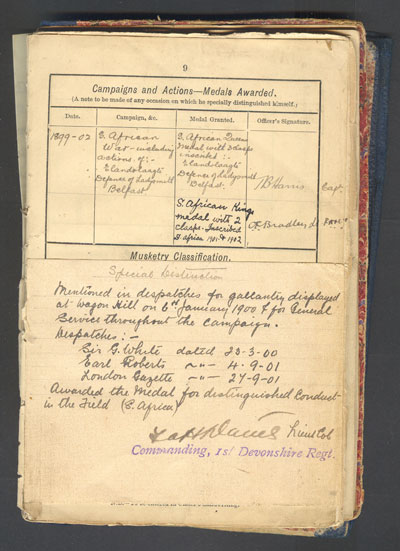 9
Campaigns and Actions—Medals Awarded.
(A note to be made of any occasion on which he specially distinguished himself.)
Date. Campaign, &c. Medal Granted. Officer's Signature.
1899-02 S. African War - including actions of :- Elandslaagte Defence of Ladysmith Belfast
S. African Queens medal with 3 clasps inscribed :- Elandslaagte Defence of Ladysmith Belfast. Harris Capt
S. African Kings medal with 2 clasps. Inscribed S africa 1901 & 1902 Bradley Lt
Musketry Classification.
Special Distinction
Mentioned in despatches for gallantry displayed
at Wagon Hill on 6th January 1900 & for General
Service throughout the campaign.
Despatches :-
Sir G. White dated 23-3-00
Earl Roberts -〃- 4-9-01
London Gazette -〃- 27-9-01
Awarded the Medal for distinguished Conduct
in the Field (S. Africa)
Davies Lieut Col
Commanding, 1st Devonshire Regt.